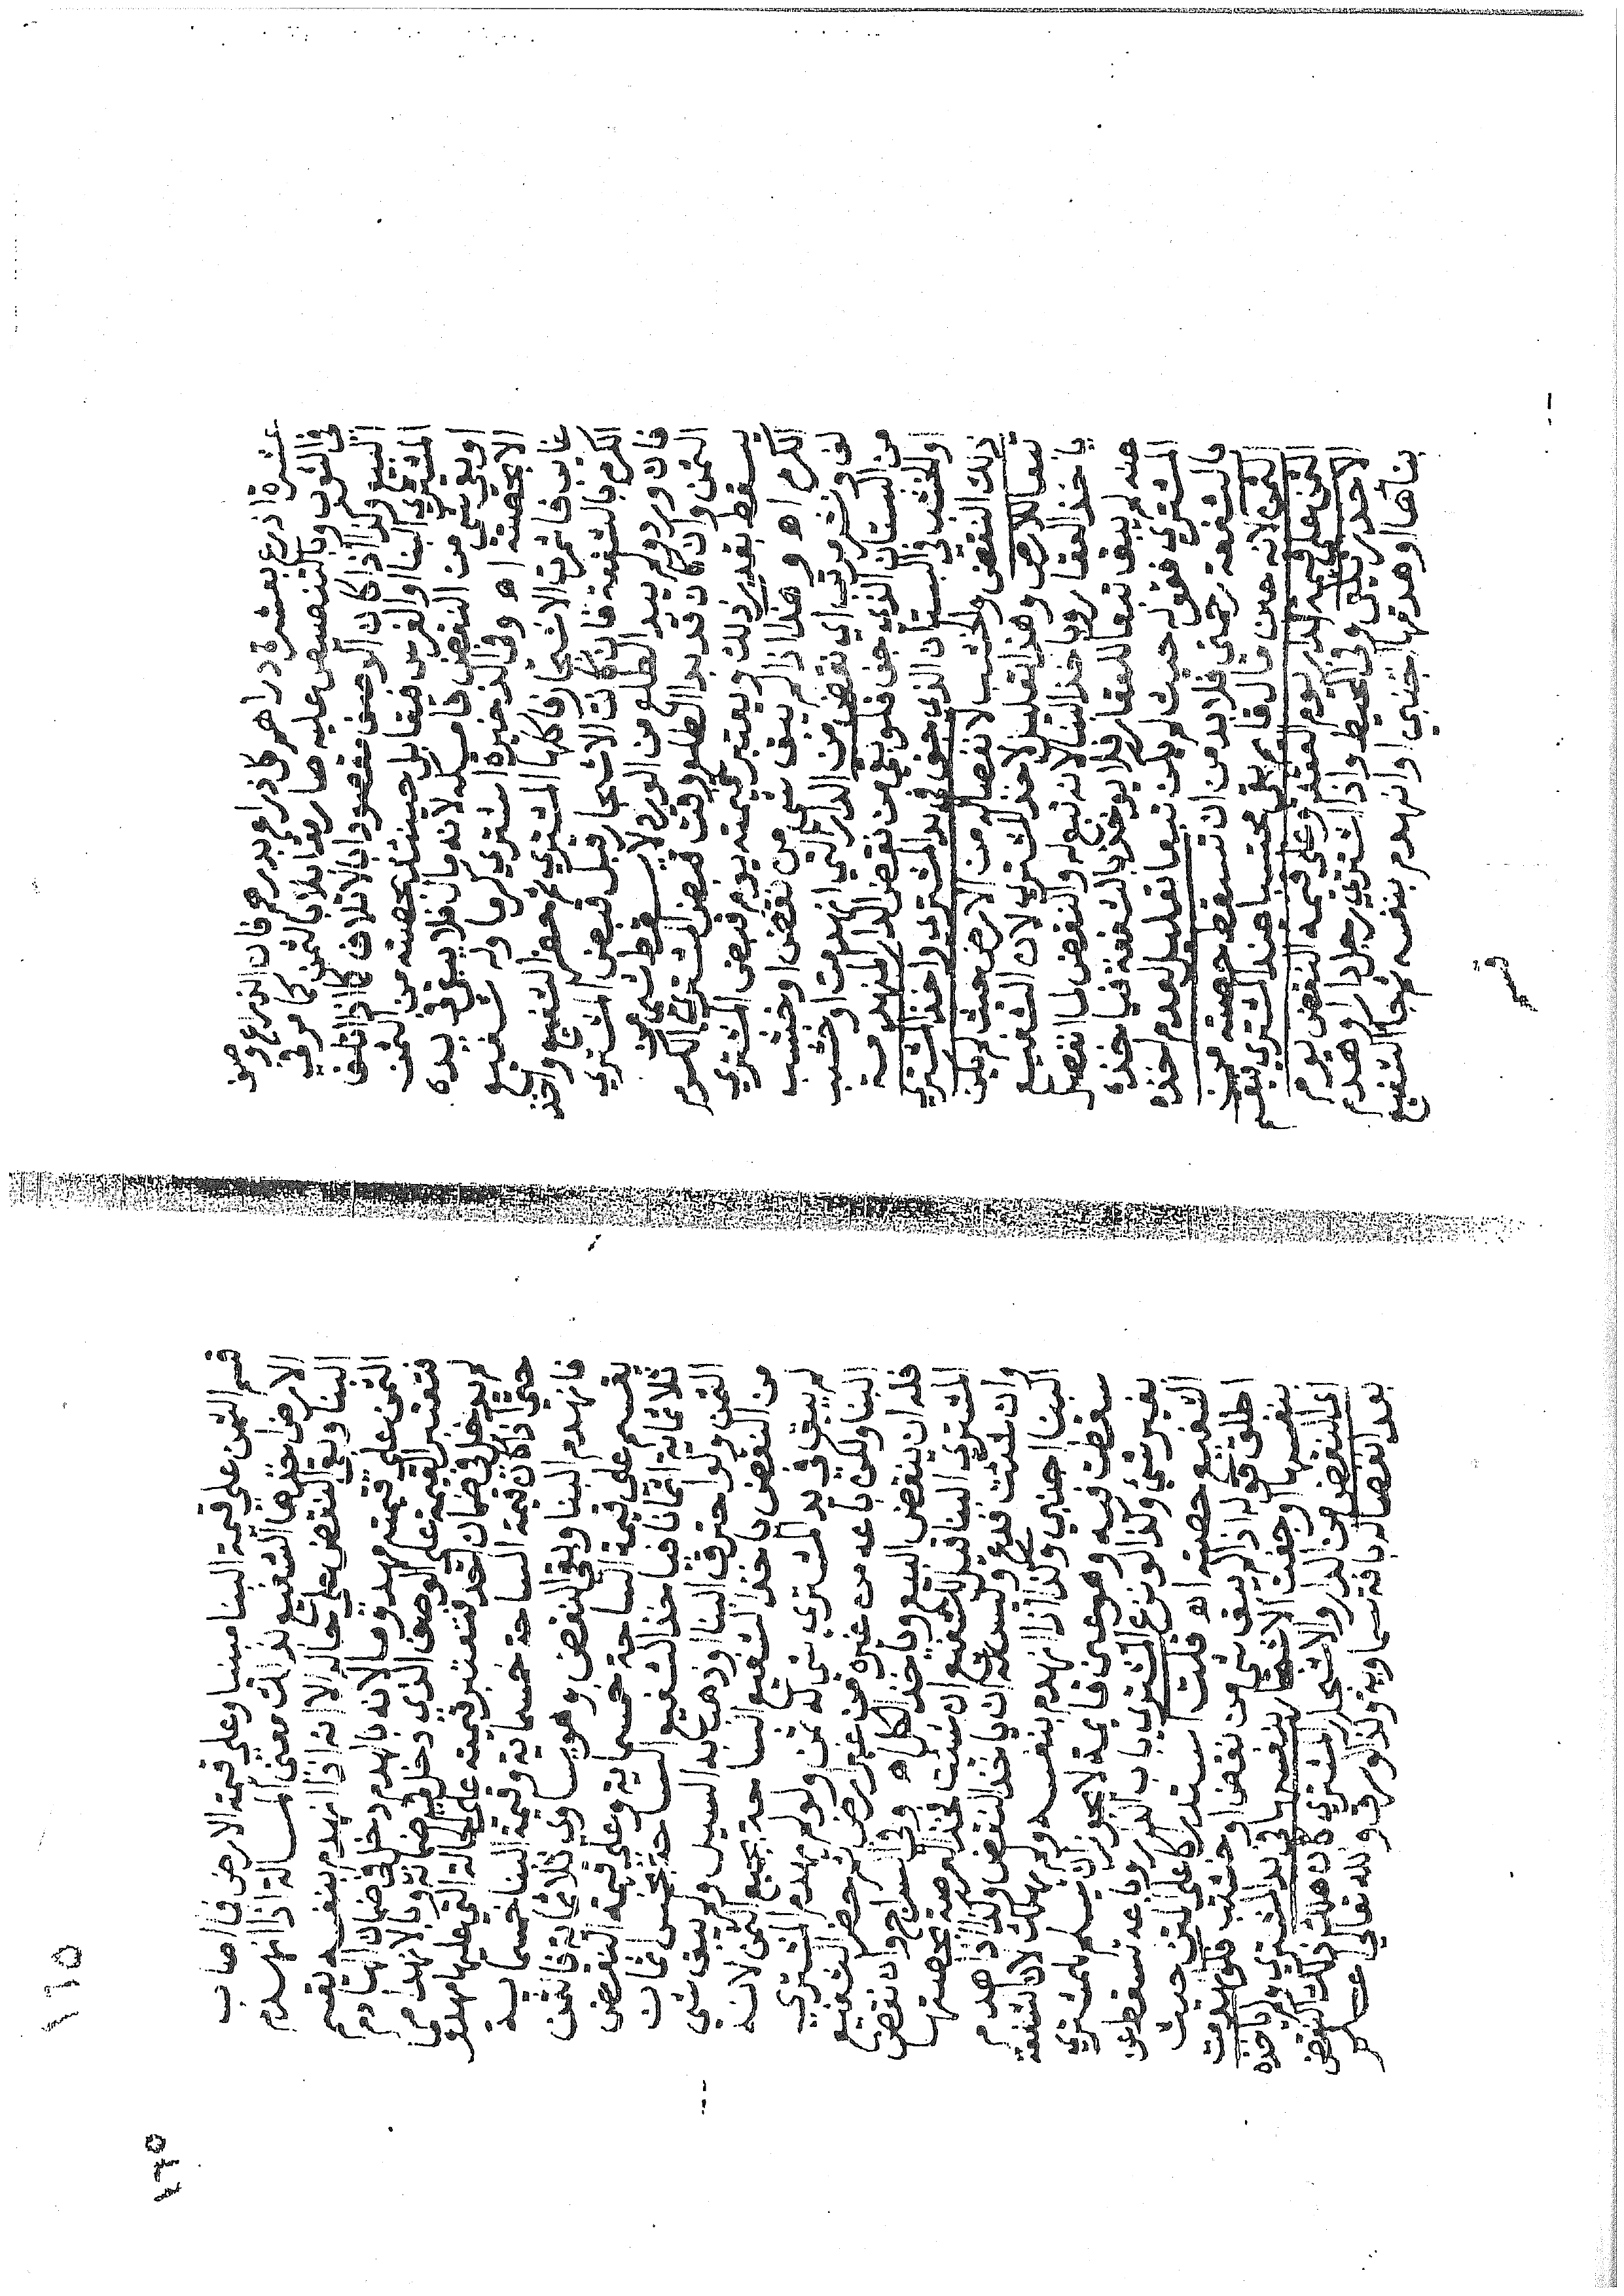 عشرة اذرع بعشرة دراهم كل ذراع بدرهم فان الذراع وصف
في الثوب وبالتنصيص عليه صار مقابلا بالثمن كما مر في
البيع وكذا اذا كان الوصف مقصودا بالاتلاف كما اذا اتلف
المشتري البنا والغرس فيقابل حينئذ بحصته من الثمن
او بقي شي من النقض فامسكه لانه مال فلا يبقى في يده
الا بحصته اه وفي الذخيرة اشتري كرما وله شفيع
غايب فاثمرت الاشجار فاكلها المشتري ثم حضر الشفيع واخذ
الكرم بالشفعة فان كانت الاشجار قبل قبض المشتري
فان ورد ولم يبد الطلع من الورد لا يسقط شي من
الثمن وان كان قد بدا الطلع وقت قبض المشتري الكرم
يسقط بقدر ذلك ويعتبر قيمته يوم قبض المشتري
الكرم اه وهذا اذا لم يبق شي من نقض او خشب
لف ونشر مرتب اي نقض من الدار التي انهدمت او خشب
من البستان الذي جف فلو بقي من نقض الدار المنهدمة
والخشب في البستان الذي جف في يد المشتري واخذ المشتري
ذلك النقض والخشب لانفصاله من الارض حيث لم يكن
تبعا للارض وهذا تعليل لاخذ المشتري لان الشفيع
ياخذ العقار وياخذ البنا لانه تبع له والنقض لما انفصل
عنه لم يبق تبعا للعقار فلا يوخذ بالشفعة فياخذه
المشتري فقوله حيث لم يكن تبعا تعليل لعدم اخذه
بالشفعة رحمتي فلا بد من ان تسقط حصته من
الثمن لانه عين مال قايم بقي محتبسا عند المشتري يقسم
الثمن علي قيمة الدار يوم العقد وعلي قيمة النقض يوم
الاخذ زيلعي وفي المحيط واذا اشتري رجل دارا وهدم
بناها او هدمها اجنبي او انهدم بنفسه ثم جا الشفيع
قسم
١٦٥
١٦٥
قسم الثمن علي قيمة البنا مبنيا وعلي قيمة الارض فما اصاب
الارض اخذها الشفيع بذلك معني المسالة اذا انهدم
البنا وبقي النقض علي حاله الا انه اذا انهدم بنفسه يقسم
الثمن علي قيمته مهدوما لانه بالهدم دخل في ضمان الهادم
فتعتبر القيمة علي الوصف الذي دخل في ضمانه وبالانهدام
لم يدخل في ضمان احد فتعتبر قيمته علي الحالة التي عليها مهدوما
حتي اذا كان قيمة الساحة خمسماية وقيمة البنا خمسماية
فانهدم البنا وبقي النقض وهو يساوي ثلاثماية فالثمن
يقسم علي قيمة الساحة خمسماية وعلي قيمة النقض
ثلاثماية اثمانا فياخذ الشفيع الساحة بخمس اثمان
الثمن ولو احترق البنا او ذهب به السيل ولم يبق شي
من النقض ياخذ الشفيع الساحة بجميع الثمن لانه
لم يبق في يد المشتري شي له ثمن ولو لم يهدم المشتري
البنا ولكن باعه من غيره من غير ارض ثم حضر الشفيع
فله ان ينقض البيع وياخذ الكل اه وفي السراج وان نقض
المشتري البنا قيل للشفيع ان شئت فخذ العرصة بحصتها
وان شئت فدع وليس له ان ياخذ النقض وكذا اذا هدم
البنا اجنبي وكذا اذا انهدم بنفسه ولم يهلك لان الشفعة
سقطت فيه وهو عين قايمة لا يجوز ان يسلم للمشتري
بغير شي وكذا لو نزع المشتري باب الدار وباعه تسقط عن
الشفيع حصته اه قلت استدراكا علي المتن حيث
اطلق قوله اذا لم يبق شي من نقض او خشب فلو هدمت
بنفسها او جفت الاشجار بنفسها في يد المشتري ولم ياخذه
اي النقض من الدار والاشجار المشتري كان هلك ذلك النقض
بعد انفصاله بافة سماوية وكذا لو سرق والله تعالي اعلم